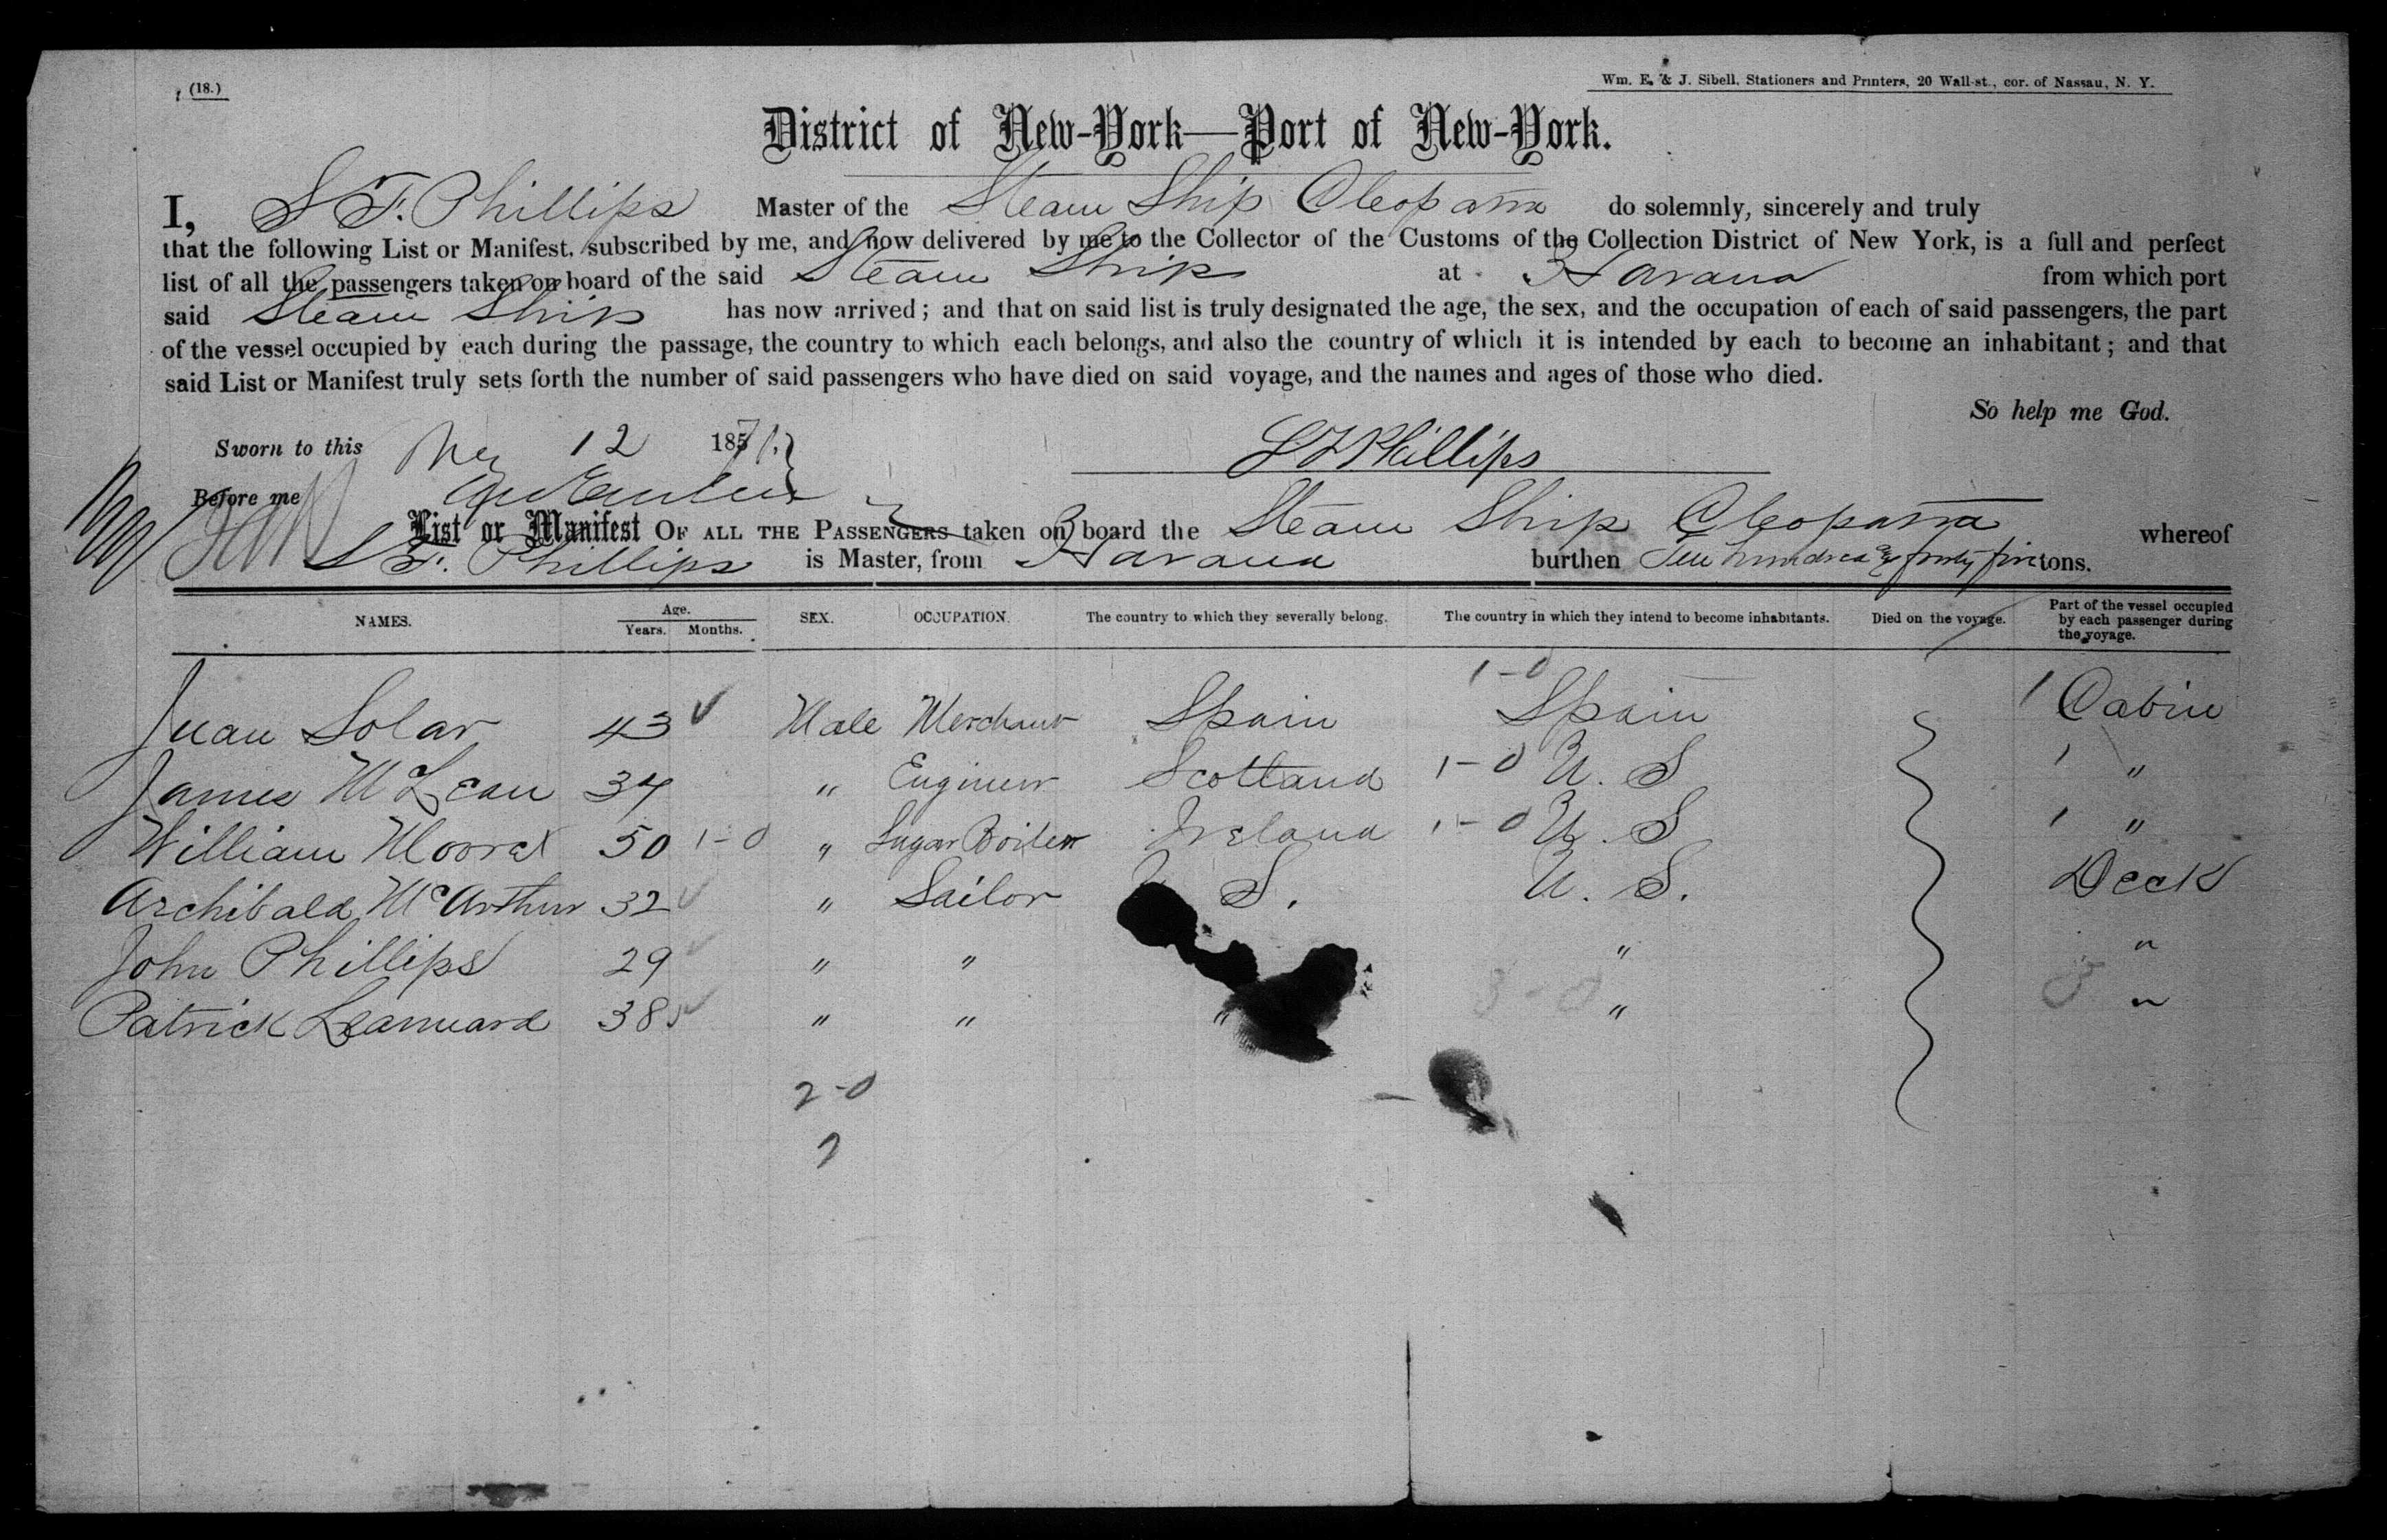 (18.)
Wm. E. & J. Sibell, Stationers and Printers, 20 Wall-st., cor. of Nassau, N. Y.
District of New-York—Port of New-York.
I, S F. Phillips Master of the Steam Ship Cleopatra do solemnly, sincerely and truly
that the following List or Manifest, subscribed by me, and now delivered by me to the Collector of the Customs of the Collection District of New York, is a full and perfect
list of all the passengers taken on board of the said Steam Ship at Havana from which port
said Steam Ship has now arrived; and that on said list is truly designated the age, the sex, and the occupation of each of said passengers, the part
of the vessel occupied by each during the passage, the country to which each belongs, and also the country of which it is intended by each to become an inhabitant; and that
said List or Manifest truly sets forth the number of said passengers who have died on said voyage, and the names and ages of those who died.
So help me God.
Sworn to this 12 1871. S F Phillips
Before me
List or Manifest OF ALL THE PASSENGERS taken on board the Steam Ship Cleopatra whereof
S F. Phillips is Master, from Havana burthen Ten hundred & forty five tons.
NAMES. Age. Years. Months. SEX. OCCUPATION. The country to which they severally belong. The country in which they intend to become inhabitants. Died on the voyage. Part of the vessel occupied by each passenger during the voyage.
1-0
Juan Solar 43 Male Merchant Spain Spain 1 Cabin
James McLean 34 " Engineer Scotland 1-0 U. S 1 "
William Moorat 50 1-0 " Sugar Boiler Ireland 1-0 U. S 1 "
Archibald McArthur 32 " Sailor S. U. S. Deck
John Phillips 29 " " " "
Patrick Leannard 38 " " " 3-0 " 3 "
2-0